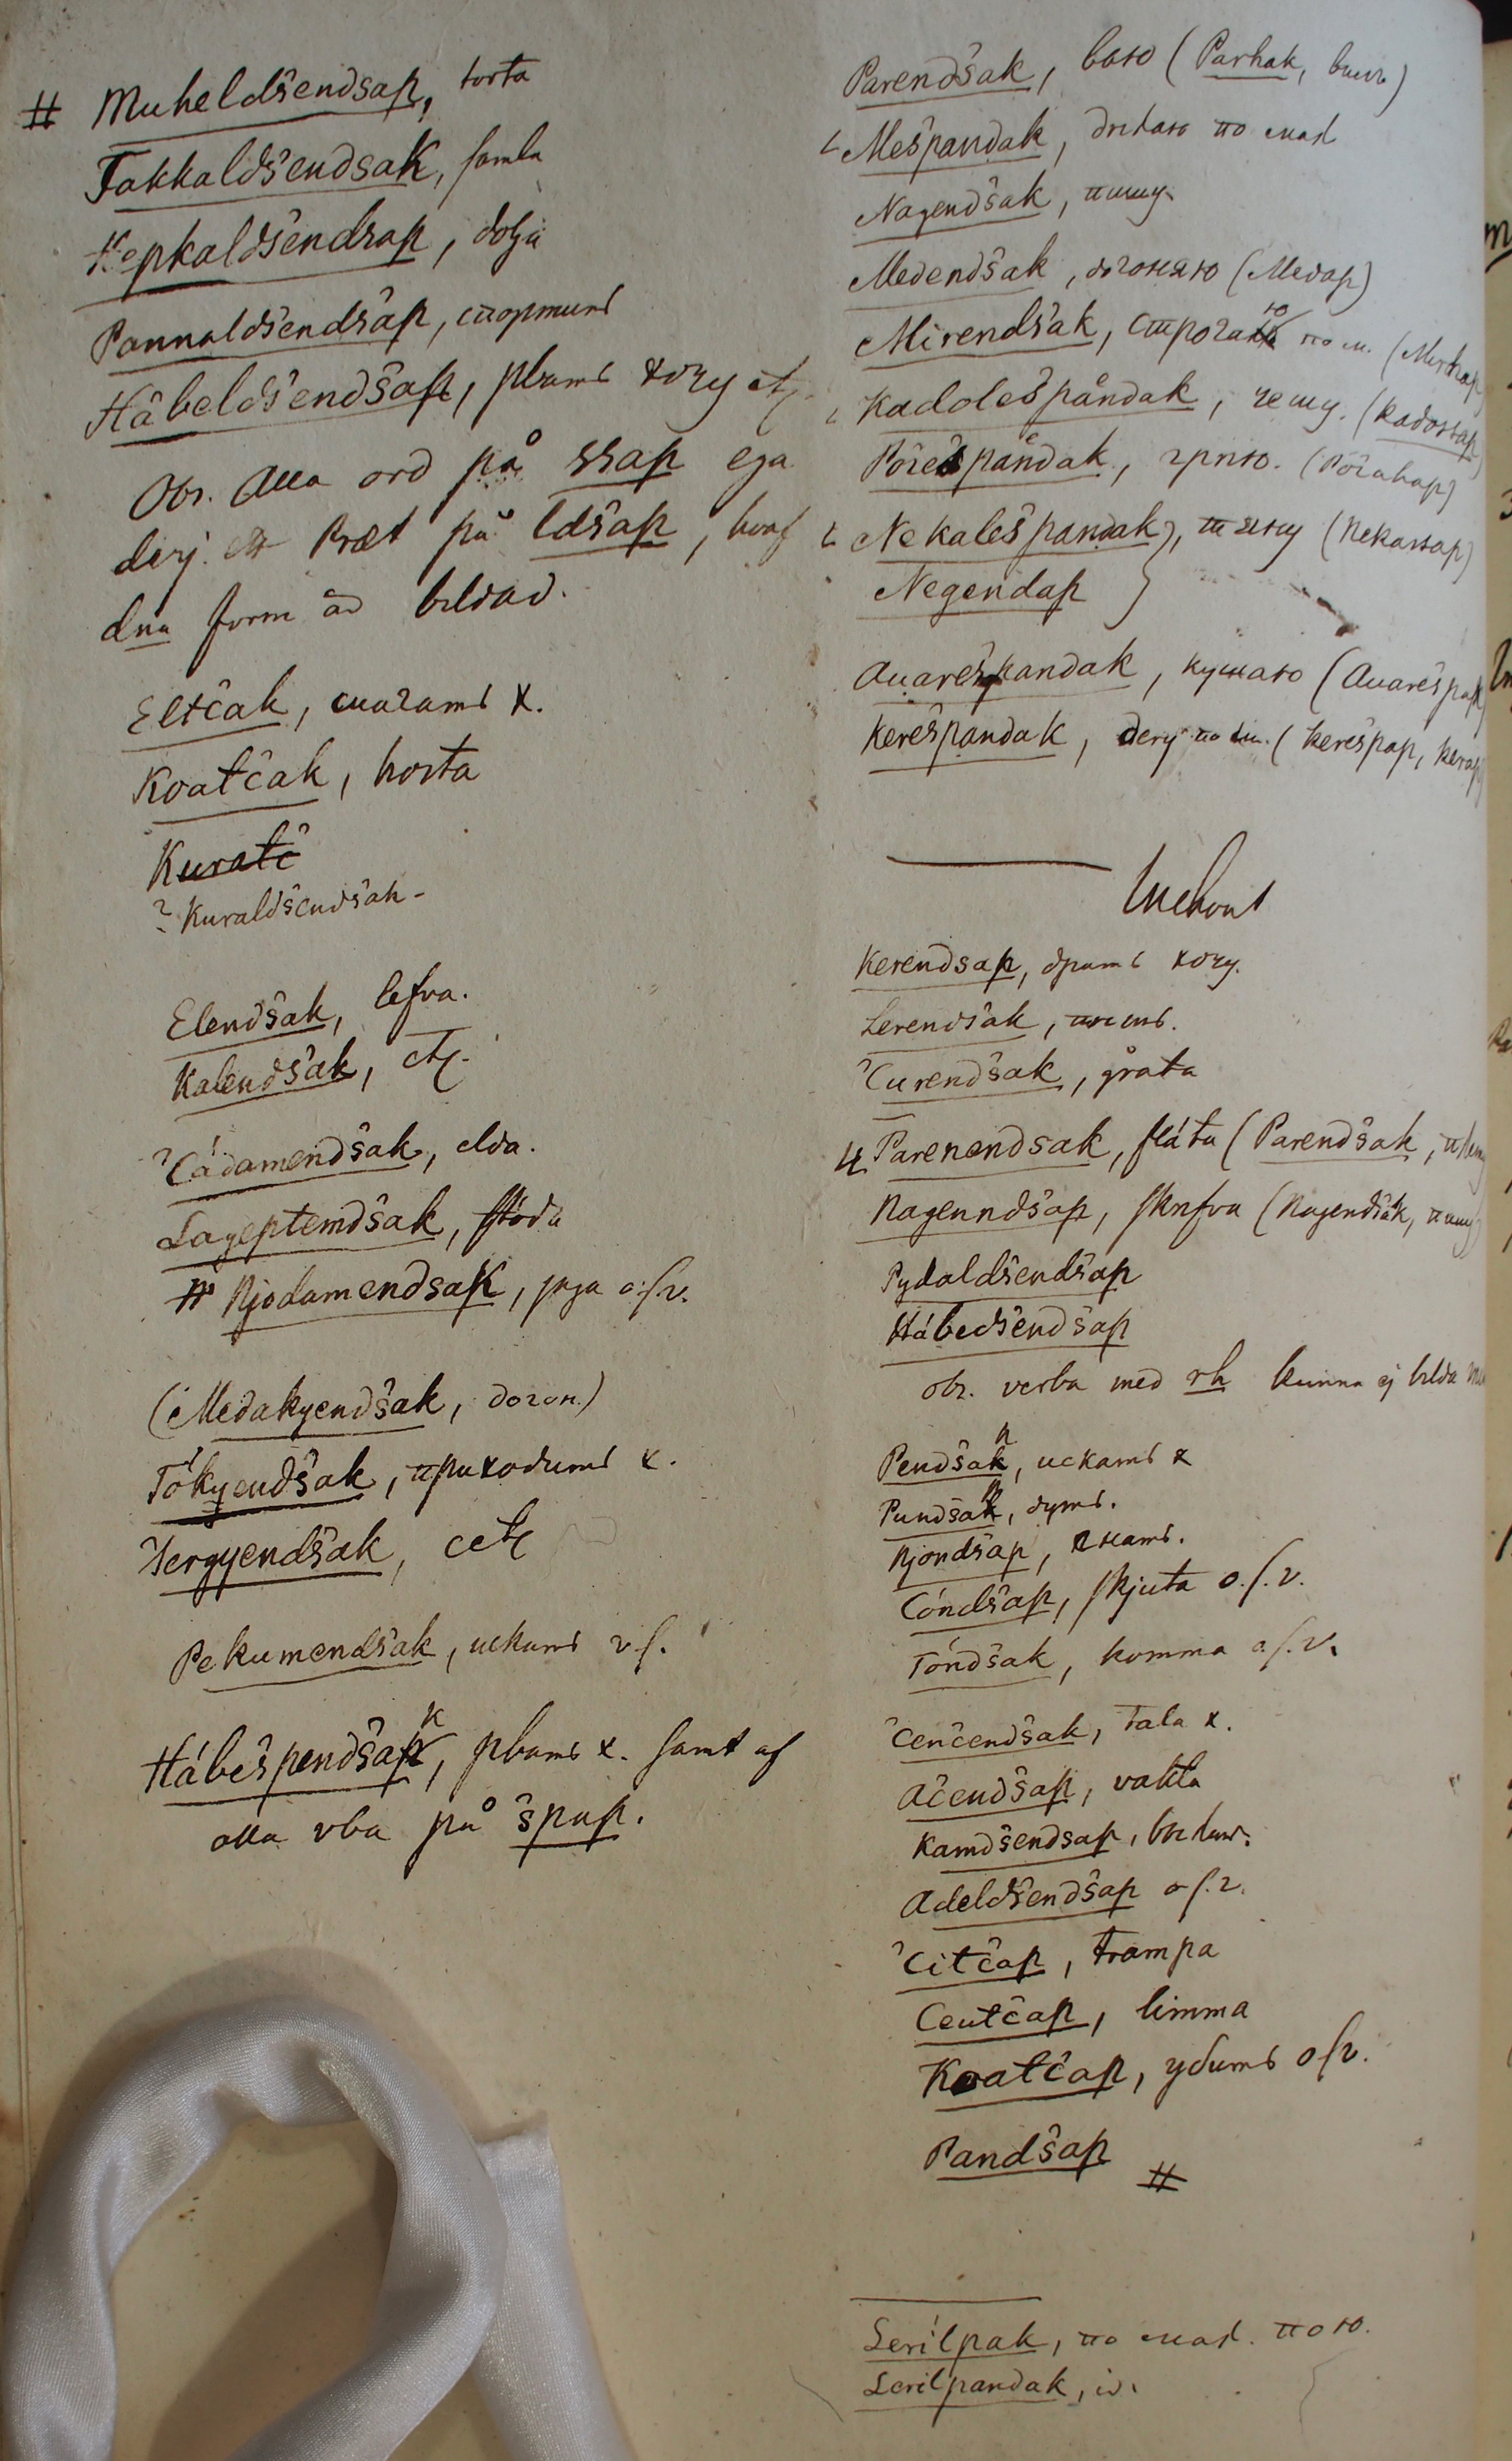 # Muheldsendsap, torta
Takkaldŝendsak, samla
Kepkaldsendsap, dölja
Pannaldsendsap, спортить
Hábeldŝendŝap, рвать хочу etc.
Obs. Alla ord på ssap ega
derj. Præt på ldŝap, hvaf
dna form är bildad.
Eltĉak, шагать х.
Koatĉak, hosta
Kuratĉ
? Kuraldŝendŝak -
Elendŝak, lefva.
Kalendŝak, etc.
Ĉádamendŝak, elda.
Lageptemdŝak, stöda
# Njodamendsak, jaga o.s.v.
(Medakyendŝak, догон.)
Tókyendŝak, приходить х.
Jergyendŝak, cetc
Pekumendŝak, искать v.s.
Hábeŝpendŝak, рвать х. samt af
alla vba på ŝpap.
Parendŝak, вою (Parhak, выть)
Meŝpandak, по мал
Nagendŝak, пишу
Medendŝak, догоняю (Medap)
Mirendŝak, строгаю по м.
Kadoleŝpandak, чешу. (Kadossap
Póreŝpandak, грызю. (Pórahap)
Nekaleŝpandak, тяну (Nekassap)
Negendap
Auareŝpandak, кушаю (Auareŝpak
Kereŝpandak, деру по м. (Kereŝpap, Kerap
Kerendsap, драть хочу.
Lerendŝak,
Ĉurendŝak, gråta
Parenendsak, flåta (Parendŝak,
Nagenndŝap, skrifva (Nagendŝak, пишу
Pydaldŝendŝap
Hábedŝendŝap
obs. verba med rh kunna ej bilda
Pendŝak, искать х
Pundŝak, дуть.
Njondŝap, гнать.
Cóndŝap, skjuta o.s.v.
Tóndŝak, komma o.s.v.
Ĉenĉendŝak, tala x.
Aĉendŝap, vakta
Kamdŝendsap,
Adeldŝendŝap o.s.v.
Ĉitĉap, trampa
Ceutĉap, limma
Koatĉap, убить osv.
Pandŝap #
Lerilpak, по мал. пою.
Lerilpandak, id.